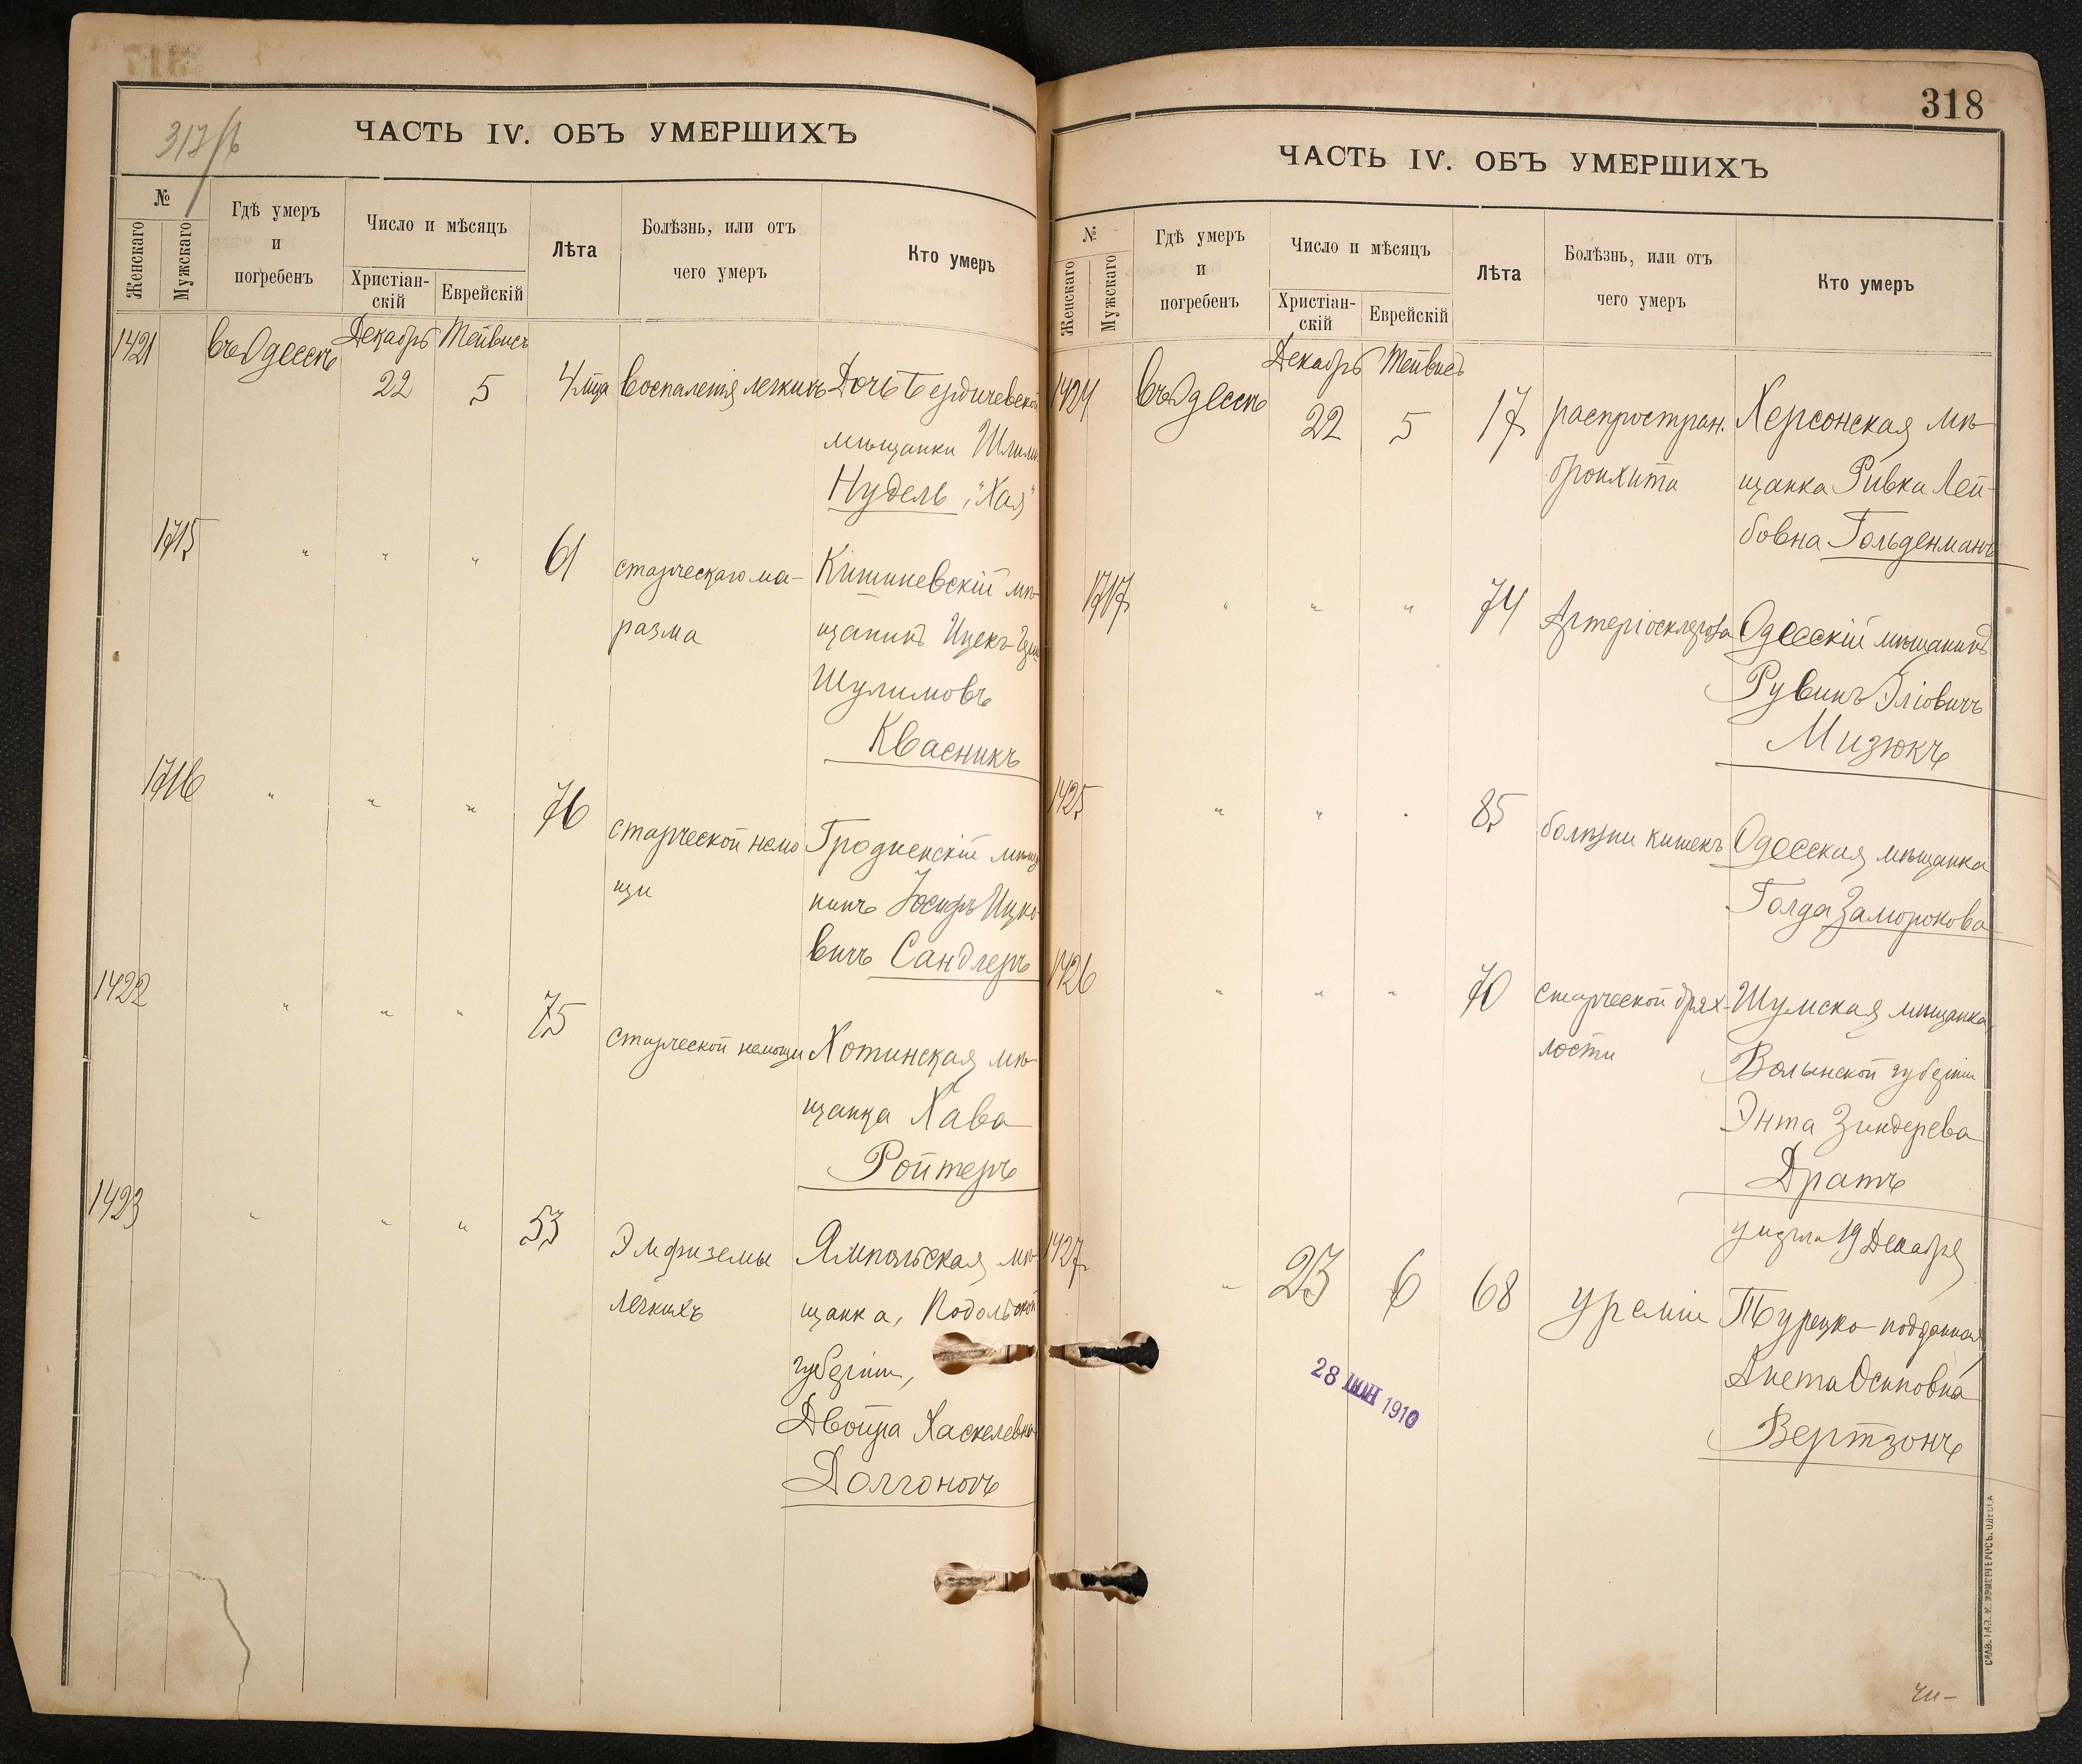 317/б
ЧАСТЬ IV. ОБЪ УМЕРШИХЪ
№
Женскаго
Мужскаго
Гдѣ умеръ
и
погребенъ
Число и мѣсяцъ
Христіан-
скій
Еврейскій
Лѣта
Болѣзнь, или отъ
чего умеръ
Кто умеръ
Декабрь Тейвисъ
1421 въ Одессѣ 22 5 4 мца воспаленія легкихъ Дочь Бердичевской
мѣщанки
Нудель, "Хая"
1715 " " " 61 старческаго ма- Кишиневскій мѣ-
разма щанинъ Ицекъ
Шулимовъ
Квасникъ
1716 " " " 76 старческой немо Гродненскій мѣща
щи нинъ Іосифъ Ицко-
вичъ Сандлеръ
1422 " " " 75 старческой немощи Хотинская мѣ-
щанка Хава
Ройтеръ
1423 " " " 53 Эмфиземы Ямпольская мѣ-
легкихъ щанка, Подольской
губерніи,
Двойра Хаскелевна
318
ЧАСТЬ IV. ОБЪ УМЕРШИХЪ
№
Женскаго
Мужскаго
Гдѣ умеръ
и
погребенъ
Число и мѣсяцъ
Христіан-
скій
Еврейскій
Лѣта
Болѣзнь, или отъ
чего умеръ
Кто умеръ
Декабрь Тейвисъ
1424 въ Одессѣ 22 5 17 распростран. Херсонская мѣ-
бронхита щанка Ривка Лей-
бовна Гольденманъ
1717 " " " 74 Артеріосклероза Одесскій мѣщанинъ
Рувинъ Эліовичъ
Мизюкъ
1425 " " " 85 болѣзни кишекъ Одесская мѣщанка
Голда Заморокова
1426 " " " 70 старческой дрях- Шумская мѣщанка
лости Волынской губерніи
Энта Зиндерева
Дратъ
умерла 19 Декабря
1427 " 23 6 68 уреміи Турецко-подданная
Анета Осиповна
Вертзонъ
28 ІЮН 1910